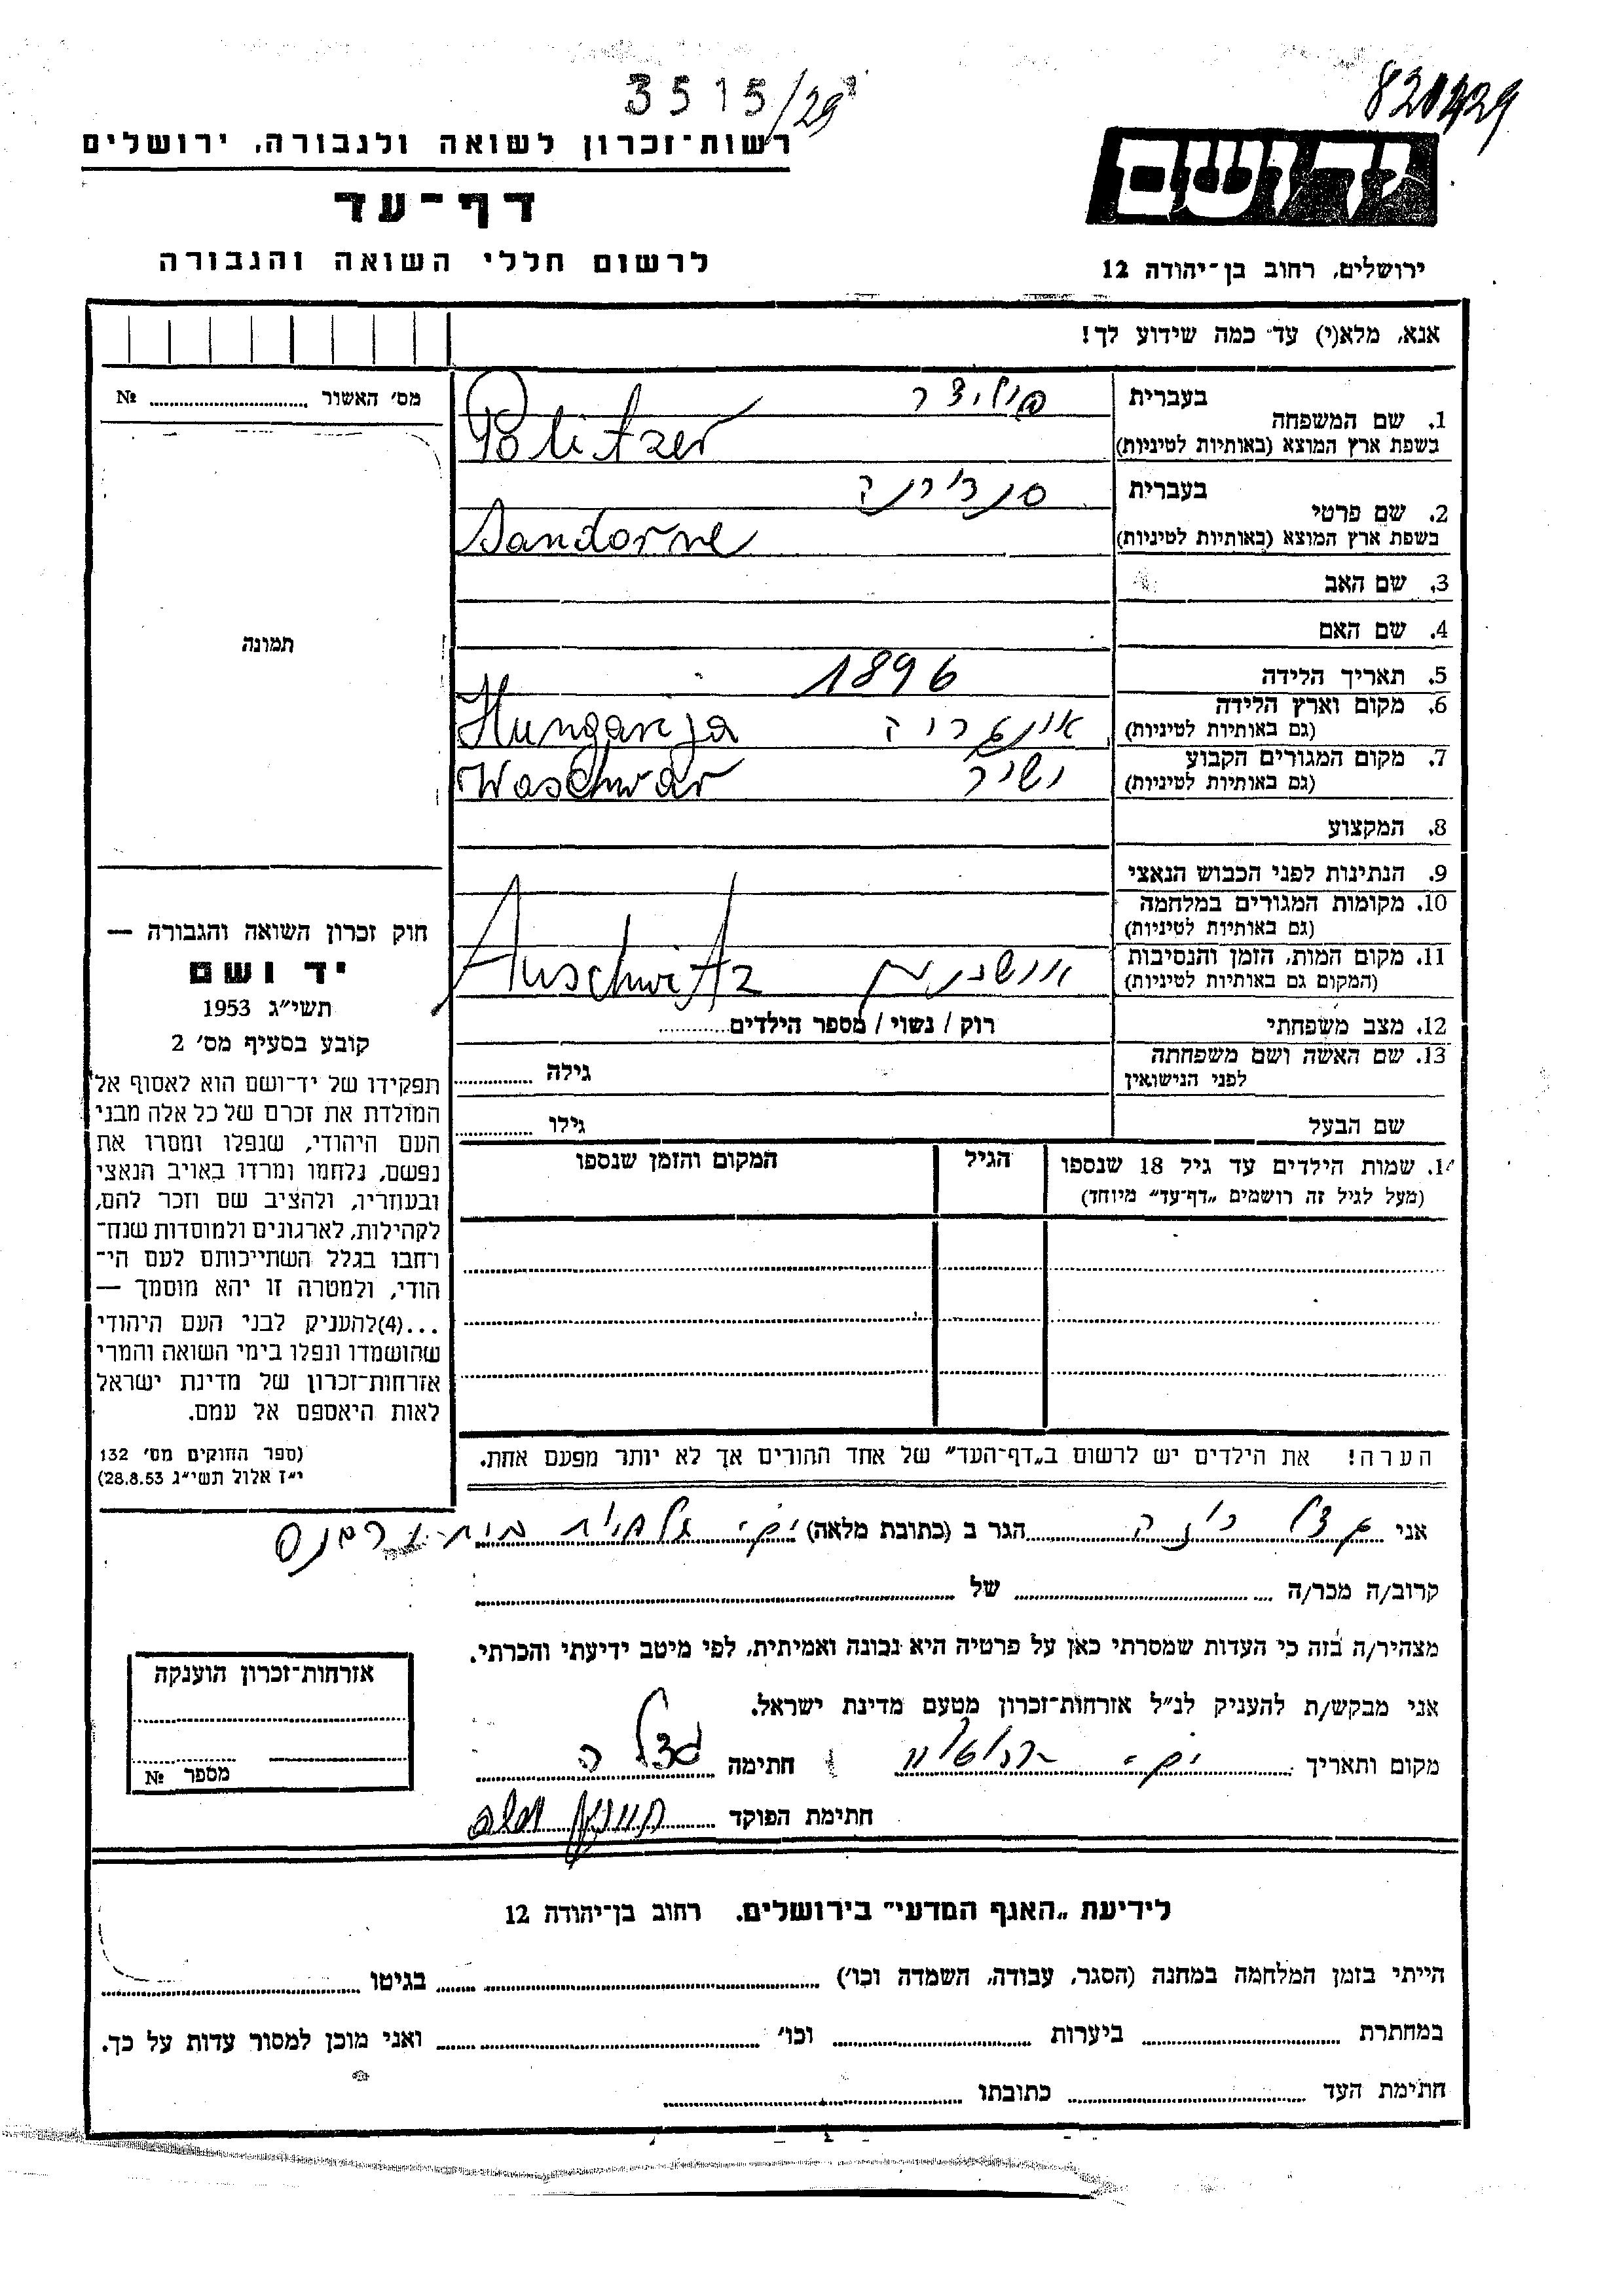 3515/29
820429
רשות־זכרון לשואה ולגבורה, ירושלים
יד ושם
דף־עד
לרשום חללי השואה והגבורה
ירושלים, רחוב בן־יהודה 12
אנא, מלא(י) עד כמה שידוע לך!
מס׳ האשור ............ №
תמונה
1. שם המשפחה
בעברית פוליצר
בשפת ארץ המוצא (באותיות לטיניות) Politzer
2. שם פרטי
בעברית
בשפת ארץ המוצא (באותיות לטיניות) Sandorne
3. שם האב
4. שם האם
5. תאריך הלידה 1896
6. מקום וארץ הלידה אונגריה Hungarija
(גם באותיות לטיניות)
7. מקום המגורים הקבוע Waschwar
(גם באותיות לטיניות)
8. המקצוע
9. הנתינות לפני הכבוש הנאצי
10. מקומות המגורים במלחמה
(גם באותיות לטיניות)
11. מקום המות, הזמן והנסיבות Auschwitz
(המקום גם באותיות לטיניות)
12. מצב משפחתי רוק / נשוי / מספר הילדים............
13. שם האשה ושם משפחתה
לפני הנישואין גילה ............
שם הבעל גילו ............
14. שמות הילדים עד גיל 18 שנספו
(מעל לגיל זה רושמים „דף־עד״ מיוחד)
הגיל
המקום והזמן שנספו
הערה! את הילדים יש לרשום ב„דף־העד״ של אחד ההורים אך לא יותר מפעם אחת.
חוק זכרון השואה והגבורה —
יד ושם
תשי״ג 1953
קובע בסעיף מס׳ 2
תפקידו של יד־ושם הוא לאסוף אל
המולדת את זכרם של כל אלה מבני
העם היהודי, שנפלו ומסרו את
נפשם, נלחמו ומרדו באויב הנאצי
ובעוזריו, ולהציב שם וזכר להם,
לקהילות, לארגונים ולמוסדות שנח־
רחבו בגלל השתייכותם לעם הי־
הודי, ולמטרה זו יהא מוסמך —
...(4)להעניק לבני העם היהודי
שהושמדו ונפלו בימי השואה והמרי
אזרחות־זכרון של מדינת ישראל
לאות היאספם אל עמם.
(ספר החוקים מס׳ 132
י״ז אלול תשי״ג 28.8.53)
אני ............ הגר ב (כתובת מלאה) ............
קרוב/ה מכר/ה ............ של ............
מצהיר/ה בזה כי העדות שמסרתי כאן על פרטיה היא נכונה ואמיתית, לפי מיטב ידיעתי והכרתי.
אני מבקש/ת להעניק לנ״ל אזרחות־זכרון מטעם מדינת ישראל.
מקום ותאריך ............ חתימה ............
חתימת הפוקד ............
אזרחות־זכרון הוענקה
מספר №
לידיעת „האגף המדעי״ בירושלים. רחוב בן־יהודה 12
הייתי בזמן המלחמה במחנה (הסגר, עבודה, השמדה וכו׳) ............ בגיטו ............
במחתרת ............ ביערות ............ וכו׳ ............ ואני מוכן למסור עדות על כך.
חתימת העד ............ כתובתו ............